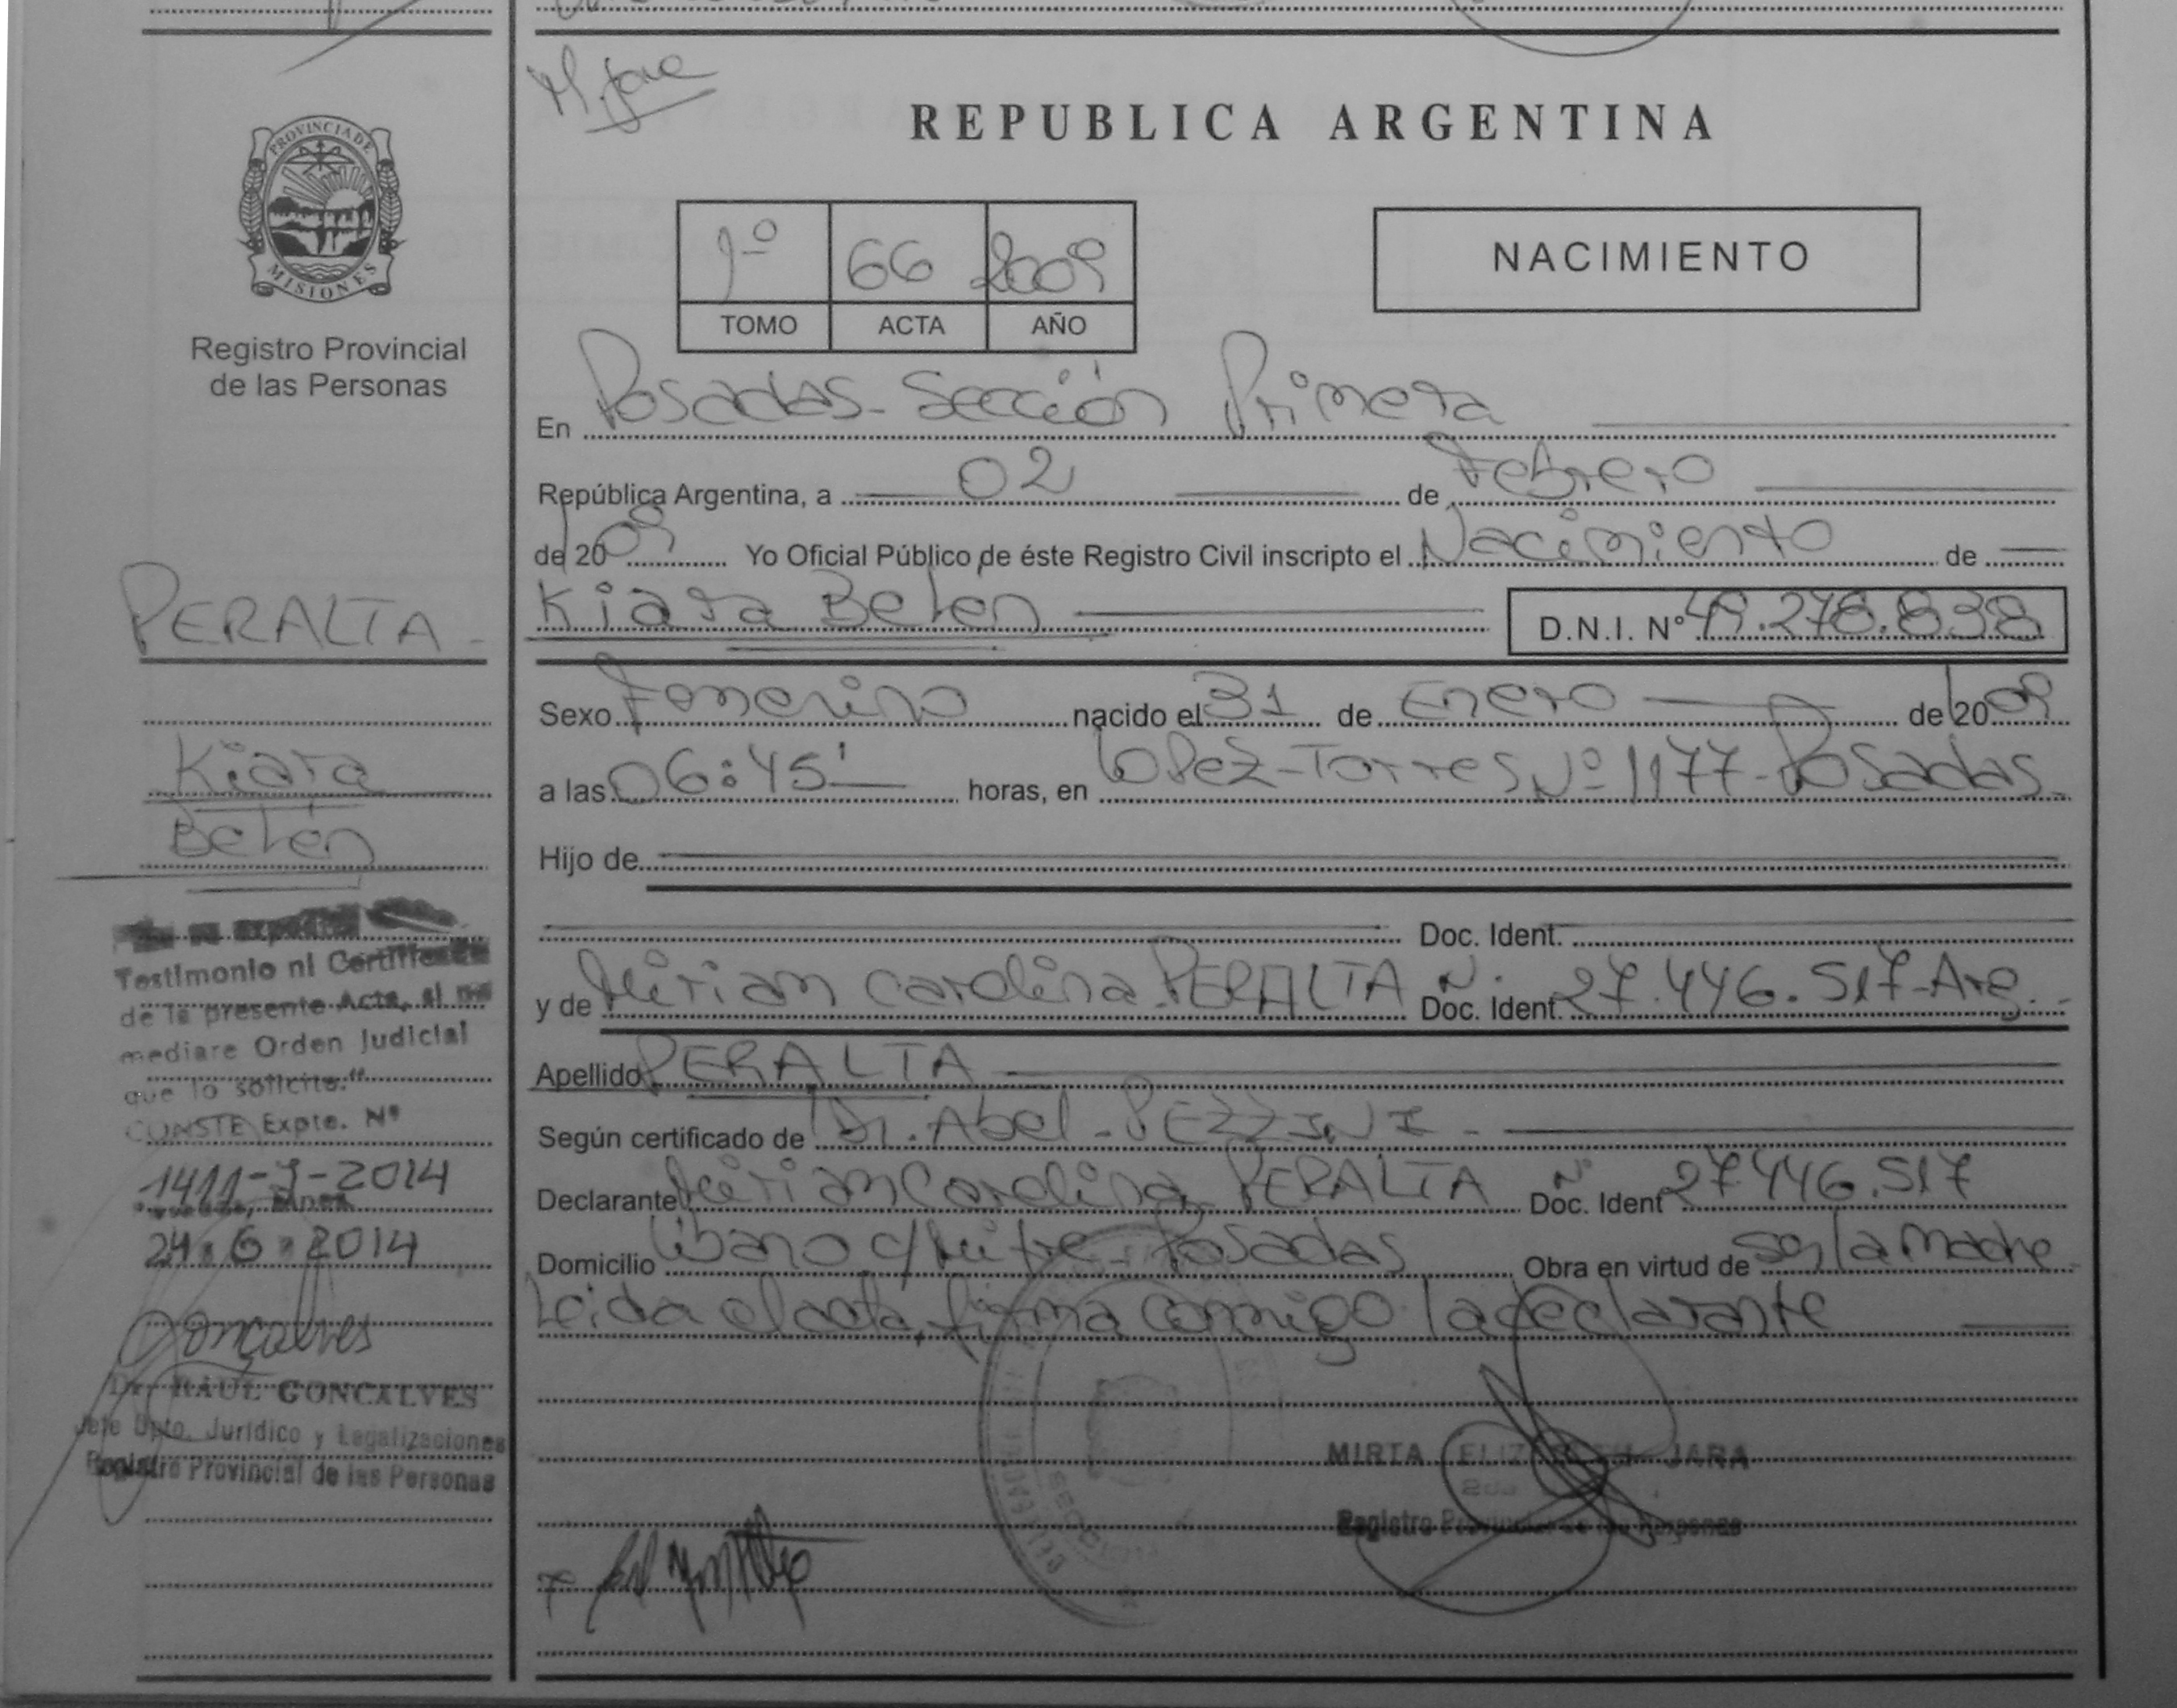 M. Jara
REPUBLICA ARGENTINA
PROVINCIA DE
MISIONES
Registro Provincial
de las Personas
1º 66 2009
TOMO ACTA AÑO
NACIMIENTO
En Posadas-Sección Primera
República Argentina, a 02 de Febrero
de 2009 Yo Oficial Público de éste Registro Civil inscripto el Nacimiento de
Kiara Belen D.N.I. Nº 49.278.838
Sexo Femenino nacido el 31 de Enero de 2009
a las 06:45' horas, en López-Torres Nº 1177-Posadas
Hijo de
Doc. Ident.
y de Mirian Carolina PERALTA Doc. Ident. Nº 27.446.517-Arg.
Apellido PERALTA
Según certificado de Dr. Abel-PEZZINI-
Declarante Mirian Carolina PERALTA Doc. Ident Nº 27.446.517
Domicilio Libano c/Mitre-Posadas Obra en virtud de ser la Madre
Leida el acta, firma conmigo la declarante
MIRTA ELIZABETH JARA
Registro Provincial de las Personas
PERALTA-
Kiara
Belén
No se expedirá
Testimonio ni Certificado
de la presente Acta, si no
mediare Orden Judicial
que lo solicite."
CONSTE Expte. Nº
1411-J-2014
24.6.2014
Goncalves
Dr. RAUL GONCALVES
Jefe Dpto. Jurídico y Legalizaciones
Registro Provincial de las Personas